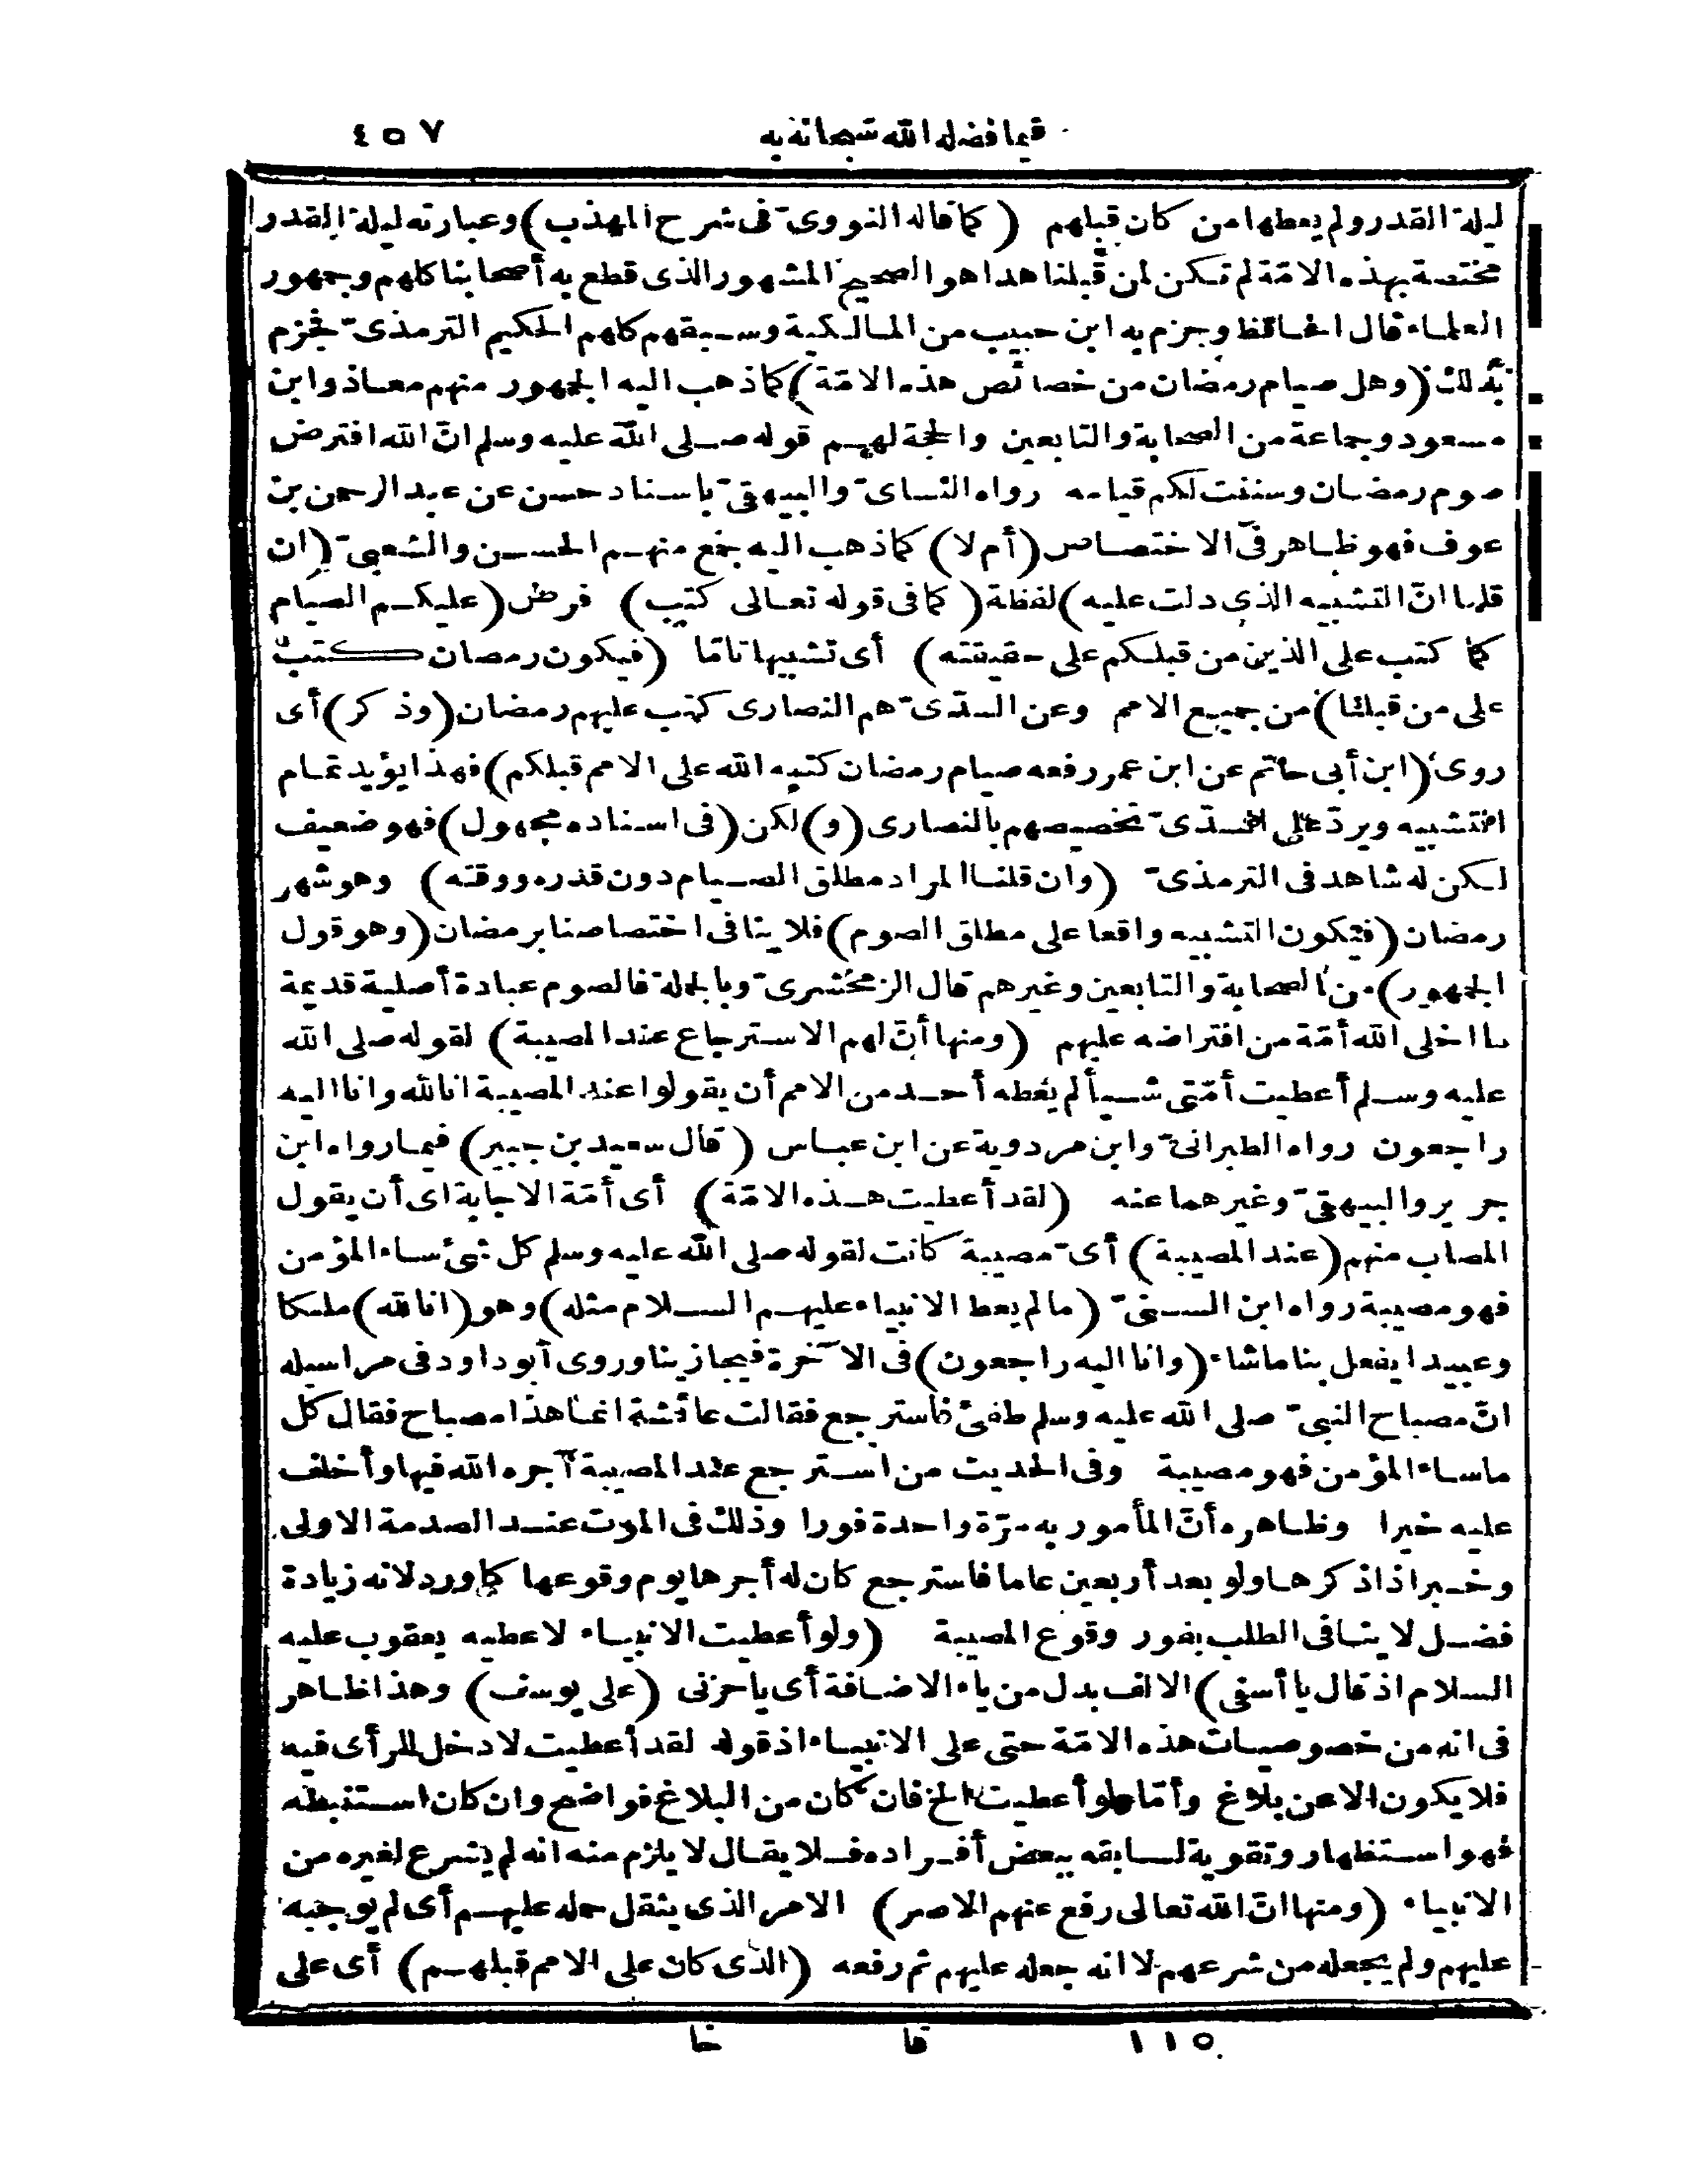 فيما فضله الله سبحانه به ٤٥٧
ليلة القدر ولم يعطها من كان قبلهم (كما قاله النووى فى شرح المهذب) وعبارته ليلة القدر
مختصة بهذه الامّة لم تكن لمن قبلنا هذا هو الصحيح المشهور الذى قطع به أصحابنا كلهم وجمهور
العلماء قال الحافظ وجزم به ابن حبيب من المالكية وسبقهم كلهم الحكيم الترمذىّ فجزم
بذلك (وهل صيام رمضان من خصائص هذه الامّة) كما ذهب اليه الجمهور منهم معاذ وابن
مسعود وجماعة من الصحابة والتابعين والحجة لهم قوله صلى الله عليه وسلم انّ الله افترض
صوم رمضان وسننت لكم قيامه رواه النساىّ والبيهقىّ باسناد حسن عن عبد الرحمن بن
عوف فهو ظاهر فى الاختصاص (أم لا) كما ذهب اليه جمع منهم الحسن والشعبىّ (ان
قلنا انّ التشبيه الذى دلت عليه) لفظة (كما فى قوله تعالى كتب) فرض (عليكم الصيام
كما كتب على الذين من قبلكم على حقيقته) أى تشبيها تامّا (فيكون رمضان كتب
على من قبلنا) من جميع الامم وعن السدّىّ هم النصارى كتب عليهم رمضان (وذكر) أى
روى (ابن أبى حاتم عن ابن عمر رفعه صيام رمضان كتبه الله على الامم قبلكم) فهذا يؤيد تمام
التشبيه ويردّ على السدّىّ تخصيصهم بالنصارى (و) لكن (فى اسناده مجهول) فهو ضعيف
لكن له شاهد فى الترمذىّ (وان قلنا المراد مطلق الصيام دون قدره ووقته) وهو شهر
رمضان (فيكون التشبيه واقعا على مطلق الصوم) فلا ينافى اختصاصنا برمضان (وهو قول
الجمهور) من الصحابة والتابعين وغيرهم قال الزمخشرىّ وبالجملة فالصوم عبادة أصلية قديمة
ما اخلى الله أمّة من افتراضه عليهم (ومنها أنّ لهم الاسترجاع عند المصيبة) لقوله صلى الله
عليه وسلم أعطيت أمّتى شيأ لم يعطه أحد من الامم أن يقولوا عند المصيبة انا لله وانا اليه
راجعون رواه الطبرانىّ وابن مردوية عن ابن عباس (قال سعيد بن جبير) فيما رواه ابن
جرير والبيهقىّ وغيرهما عنه (لقد أعطيت هذه الامّة) أى أمّة الاجابة اى أن يقول
المصاب منهم (عند المصيبة) أىّ مصيبة كانت لقوله صلى الله عليه وسلم كل شئ ساء المؤمن
فهو مصيبة رواه ابن السنىّ (ما لم يعط الانبياء عليهم السلام مثله) وهو (انا لله) ملكا
وعبيدا يفعل بنا ما شاء (وانا اليه راجعون) فى الآخرة فيجازينا وروى أبو داود فى مراسيله
انّ مصباح النبىّ صلى الله عليه وسلم طفئ فاسترجع فقالت عائشة انما هذا مصباح فقال كل
ما ساء المؤمن فهو مصيبة وفى الحديث من استرجع عند المصيبة آجره الله فيها وأخلف
عليه خيرا وظاهره أنّ المأمور به مرّة واحدة فورا وذلك فى الموت عند الصدمة الاولى
وخبر اذا ذكرها ولو بعد أربعين عاما فاسترجع كان له أجرها يوم وقوعها كما ورد لانه زيادة
فضل لا ينافى الطلب بفور وقوع المصيبة (ولو أعطيت الانبياء لاعطيه يعقوب عليه
السلام اذ قال يا أسفى) الالف بدل من ياء الاضافة أى يا حزنى (على يوسف) وهذا ظاهر
فى انه من خصوصيات هذه الامّة حتى على الانبياء اذ قوله لقد أعطيت لا دخل للرأى فيه
فلا يكون الا عن بلاغ وأمّا ولو أعطيت الخ فان كان من البلاغ فواضح وان كان استنبطه
فهو استظهار وتقوية لسابقه ببعض أفراده فلا يقال لا يلزم منه انه لم يشرع لغيره من
الانبياء (ومنها انّ الله تعالى رفع عنهم الاصر) الامر الذى يثقل حمله عليهم أى لم يوجبه
عليهم ولم يجعله من شرعهم لا انه جعله عليهم ثم رفعه (الذى كان على الامم قبلهم) أى على
١١٥ قا خا